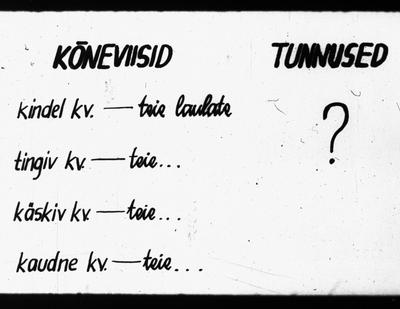 KÕNEVIISID TUNNUSED
kindel kv. — teie laulate
?
tingiv kv. — teie...
käskiv kv — teie...
kaudne kv. — teie...